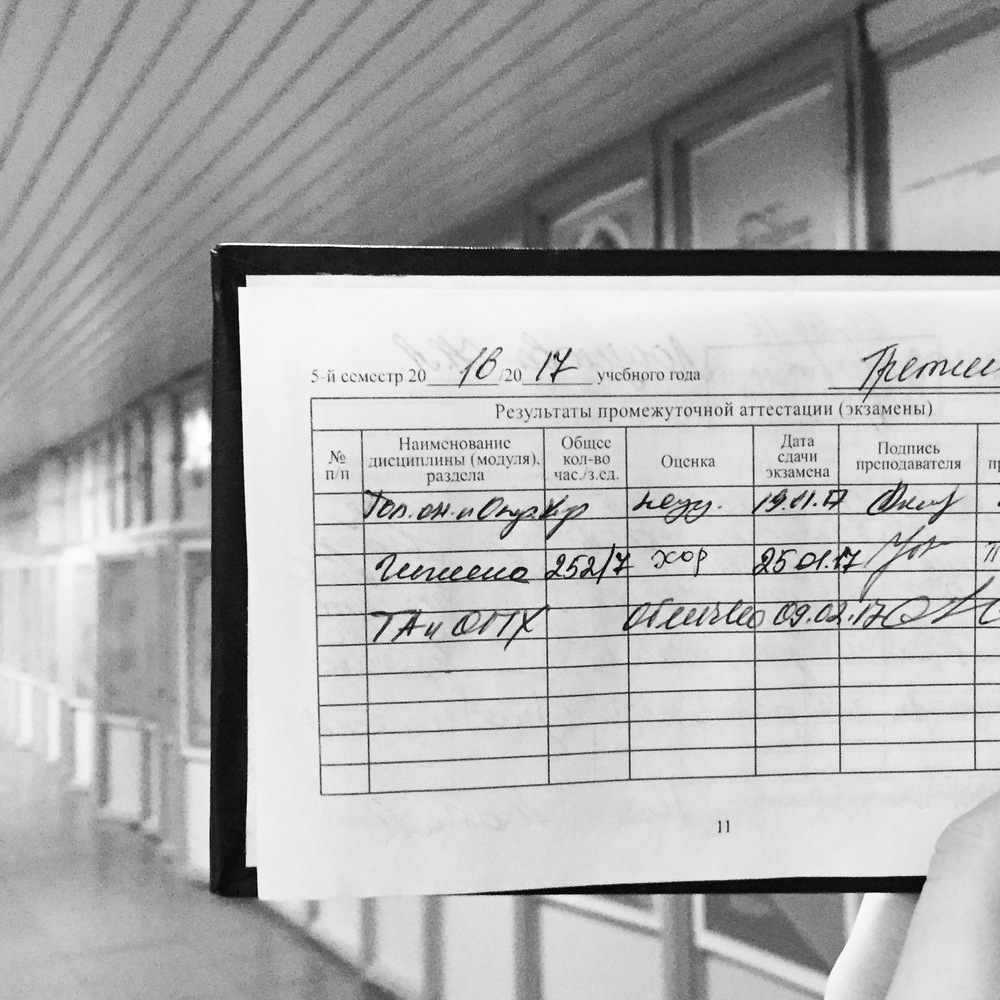 5-й семестр 20 16 /20 17 учебного года
Результаты промежуточной аттестации (экзамены)
№ п/п Наименование дисциплины (модуля), раздела Общее кол-во час./з.ед. Оценка Дата сдачи экзамена Подпись преподавателя
Топ. ан. и
Гигиена 252/7 хор 25.01.17
ТА и ОПХ Отлично 09.02.17
11